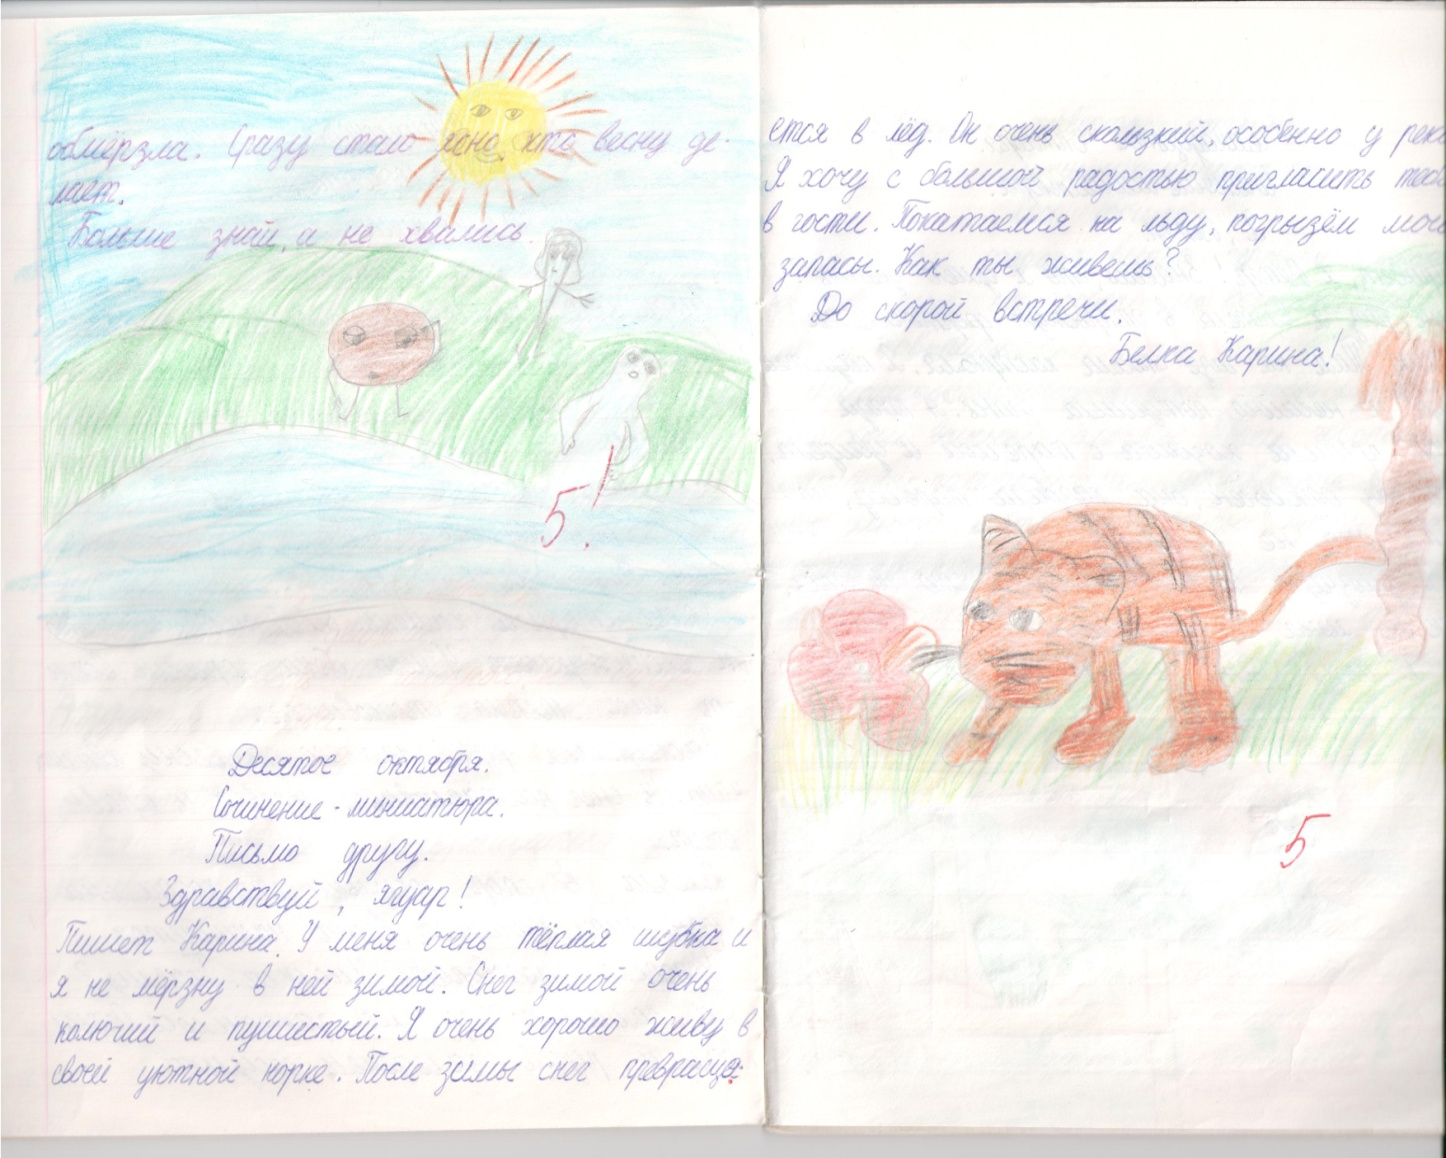 обмёрзла. Сразу стало ясно кто весну де-
лает.
Больше знай, а не хвались.
5!
Десятое октября.
Сочинение-миниатюра.
Письмо другу.
Здравствуй, ягуар!
Пишет Карина. У меня очень тёплая шубка и
я не мёрзну в ней зимой. Снег зимой очень
колючий и пушистый. Я очень хорошо живу в
своей уютной норке. После зимы снег превраща-
ется в лёд. Он очень скользкий, особенно у реки
Я хочу с большой радостью пригласить
в гости. Покатаемся на льду, погрызём мои
запасы. Как ты живешь?
До скорой встречи.
Белка Карина!
5